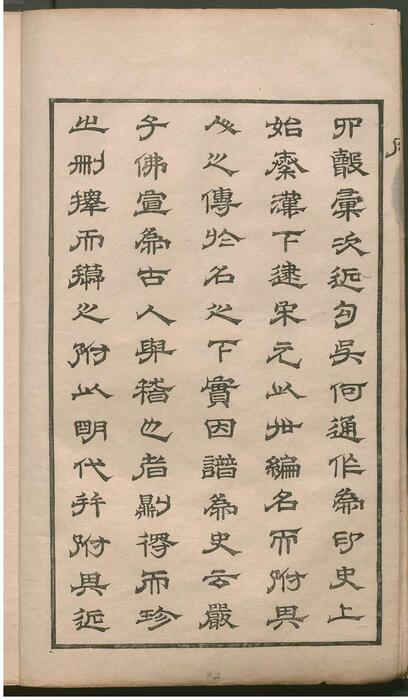 卯彙次近勾吳何通作為印史上
始秦漢下逮宋元以世編名而附其
人之傳於名之下實因譜為史云嚴
子佛宣為古人與稽也者則得而珍
之刪擇而之附以明代并附其近